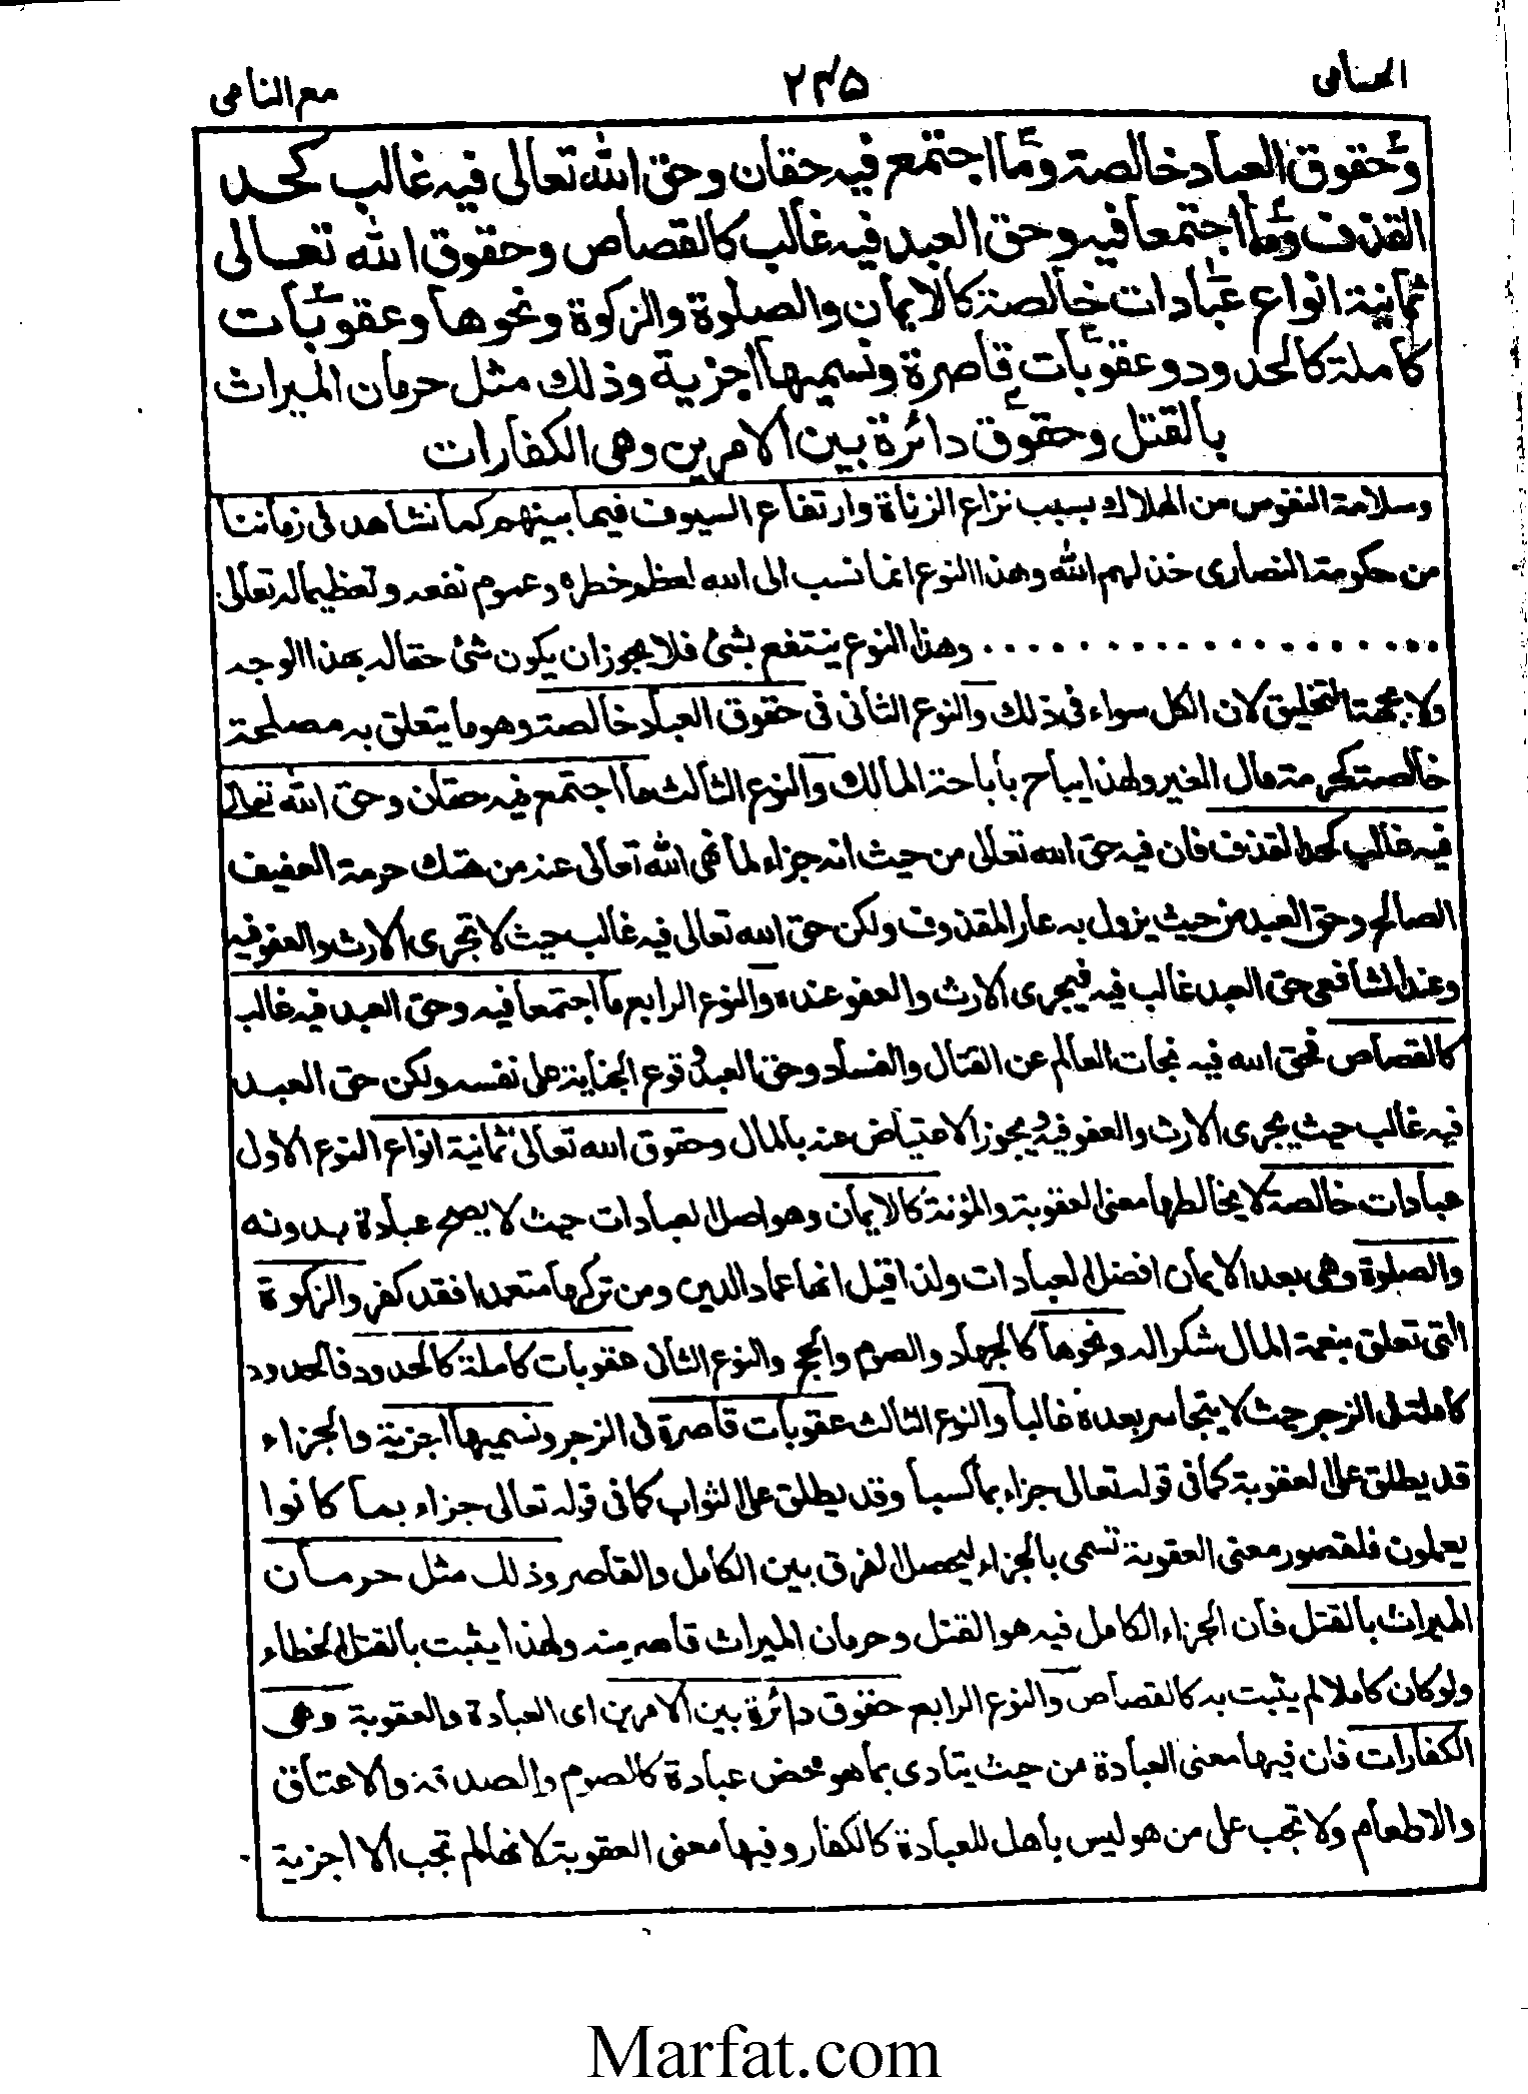 الحسامى ۲۴۵ مع النامى
وحقوق العباد خالصة وما اجتمع فيه حقان وحق الله تعالى فيه غالب كحد
القذف وما اجتمعا فيه وحق العبد فيه غالب كالقصاص وحقوق الله تعالى
ثمانية انواع عبادات خالصة كالايمان والصلوة والزكوة ونحوها وعقوبات
كاملة كالحدود وعقوبات قاصرة ونسميها اجزية وذلك مثل حرمان الميراث
بالقتل وحقوق دائرة بين الامرين وهى الكفارات
وسلامة النفوس من الهلاك بسبب نزاع الزناة وارتفاع السيوف فيما بينهم كما نشاهد فى زماننا
من حكومة النصارى خذلهم الله وهذا النوع انما نسب الى الله لعظم خطره وعموم نفعه وتعظيما له تعالى
.................... وهذا النوع ينتفع بشئ فلا يجوز ان يكون شئ حقا له بهذا الوجه
ولا بجهة التخليق لان الكل سواء فى ذلك والنوع الثانى فى حقوق العباد خالصة وهو ما يتعلق به مصلحة
خالصة كحرمة مال الغير ولهذا يباح باباحة المالك والنوع الثالث ما اجتمع فيه حقان وحق الله تعالى
فيه غالب كحد القذف فان فيه حق الله تعالى من حيث انه جزاء لما نهى الله تعالى عنه من هتك حرمة العفيف
الصالح وحق العبد من حيث يزول به عار المقذوف ولكن حق الله تعالى فيه غالب حيث لا تجرى الارث والعفو فيه
وعند الشافعى حق العبد غالب فيه فيجرى الارث والعفو عنده والنوع الرابع ما اجتمعا فيه وحق العبد فيه غالب
كالقصاص فحق الله فيه نجات العالم عن القتال والفساد وحق العبد وقوع الجناية على نفسه ولكن حق العبد
فيه غالب حيث يجرى الارث والعفو فيه ويجوز الاعتياض عنه بالمال وحقوق الله تعالى ثمانية انواع النوع الاول
عبادات خالصة لا يخالطها معنى العقوبة والمؤنة كالايمان وهو اصل العبادات حيث لا يصح عبادة بدونه
والصلوة وهى بعد الايمان افضل العبادات ولذا قيل انها عماد الدين ومن تركها متعمدا فقد كفر والزكوة
التى تعلق بنعمة المال شكرا له ونحوها كالجهاد والصوم والحج والنوع الثانى عقوبات كاملة كالحدود فالحدود
كاملة فى الزجر حيث لا يتجاسر بعده غالبا والنوع الثالث عقوبات قاصرة فى الزجر ونسميها اجزية والجزاء
قد يطلق على العقوبة كما فى قوله تعالى جزاء بما كسبا وقد يطلق على الثواب كما فى قوله تعالى جزاء بما كانوا
يعملون فلقصور معنى العقوبة تسمى بالجزاء ليحصل الفرق بين الكامل والقاصر وذلك مثل حرمان
الميراث بالقتل فان الجزاء الكامل فيه هو القتل وحرمان الميراث قاصر منه ولهذا يثبت بالقتل الخطاء
ولو كان كاملا لم يثبت به كالقصاص والنوع الرابع حقوق دائرة بين الامرين اى العبادة والعقوبة وهى
الكفارات فان فيها معنى العبادة من حيث يتادى بما هو محض عبادة كالصوم والصدقة والاعتاق
والاطعام ولا تجب على من هو ليس باهل للعبادة كالكفار وفيها معنى العقوبة لانها لم تجب الا اجزية
Marfat.com